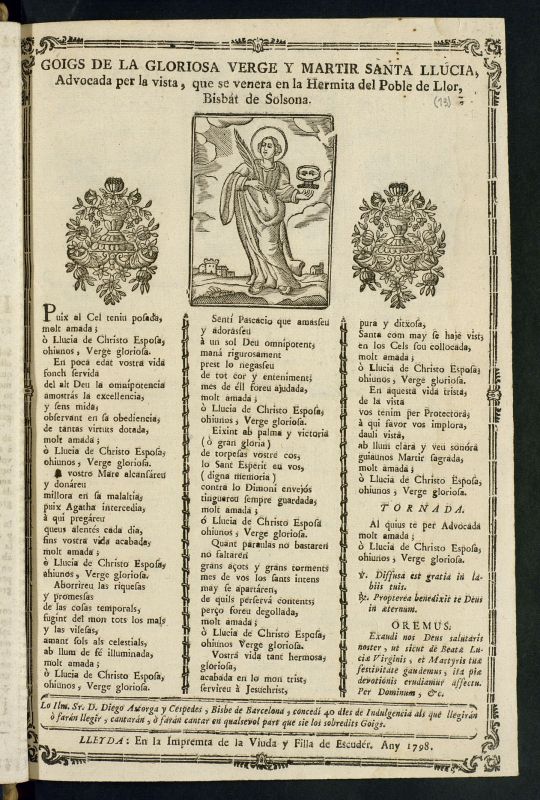 GOIGS DE LA GLORIOSA VERGE Y MARTIR SANTA LLUCIA,
Advocada per la vista, que se venera en la Hermita del Poble de Llor,
Bisbát de Solsona.
(13)
Puix al Cel teniu posada,
molt amada;
ò Llucia de Christo Esposa,
ohiunos, Verge gloriosa.
En poca edat vostra vida
fonch servida
del alt Deu la omnipotencia
amostrás la excellencia,
y sens mida,
observant en sa obediencia,
de tantas virtuts dotada,
molt amada;
ò Llucia de Christo Esposa,
ohiunos, Verge gloriosa.
A vostra Mare alcansáreu
y donáreu
millora en sa malaltia,
puix Agatha intercedia,
à qui pregáreu
queus alentés cada dia,
fins vostra vida acabada,
molt amada;
ò Llucia de Christo Esposa,
ahiunos, Verge gloriosa.
Aborrireu las riquesas
y promesas
de las cosas temporals,
fugint del mon tots los mals
y las vilesas,
amant sols als celestials,
ab llum de fé illuminada,
molt amada;
ò Llucia de Christo Esposa,
ohiunos, Verge gloriosa.
Sentí Pascacio que amasseu
y adorasseu
à un sol Deu omnipotent;
maná rigurosament
prest lo negasseu
de tot cor y enteniment;
mes de éll foreu ajudada,
molt amada;
ò Llucia de Christo Esposa,
ohiunos, Verge gloriosa.
Eixint ab palma y victoria
(ò gran gloria)
de torpesas vostre cos,
lo Sant Esperit en vos,
(digna memoria)
contra lo Dimoni envejós
tinguereu sempre guardada,
molt amada;
ó Llucia de Christo Esposa
ohiunos, Verge gloriosa.
Quant paraulas no bastaren
no faltaren
grans açots y grans torments
mes de vos los sants intens
may se apartáren,
de quils perservá contents;
perço foreu degollada,
molt amada;
ò Llucia de Christo Esposa;
ohiunos Verge gloriosa.
Vostrá vida tant hermosa,
gloriosa,
acabada en lo mon trist,
servireu à Jesuchrist,
pura y ditxosa,
Santa com may se haje vist;
en los Cels sou collocada,
molt amada;
ò Llucia de Christo Esposa;
ohiunos, Verge gloriosa.
En aquesta vida trista,
de la vista
vos tenim per Protectora;
à qui favor vos implora,
dauli vista,
ab llum clara y veu sonóra
guiaunos Martir sagrada,
molt amada;
ò Llucia de Christo Esposa,
ohiunos, Verge gloriosa.
TORNADA.
Al quius te per Advocada
molt amada;
ò Llucia de Christo Esposa,
ohiunos, Verge gloriosa.
℣. Diffusa est gratia in la-
biis tuis.
℟. Propterea benedixit te Deus
in æternum.
OREMUS.
Exaudi nos Deus salutaris
noster, ut sicut de Beatæ Lu-
ciæ Virginis, et Martyris tuæ
festivitate gaudemus, ita piæ
devotionis erudiamur affectu.
Per Dominum, &c.
Lo Ilm. Sr. D. Diego Astorga y Cespedes, Bisbe de Barcelona, concedí 40 dies de Indulgencia als que llegirán
ò farán llegir, cantarán, ò farán cantar en qualsevol part que sie los sobredits Goigs.
LLEYDA: En la Impremta de la Viuda y Filla de Escudér. Any 1798.